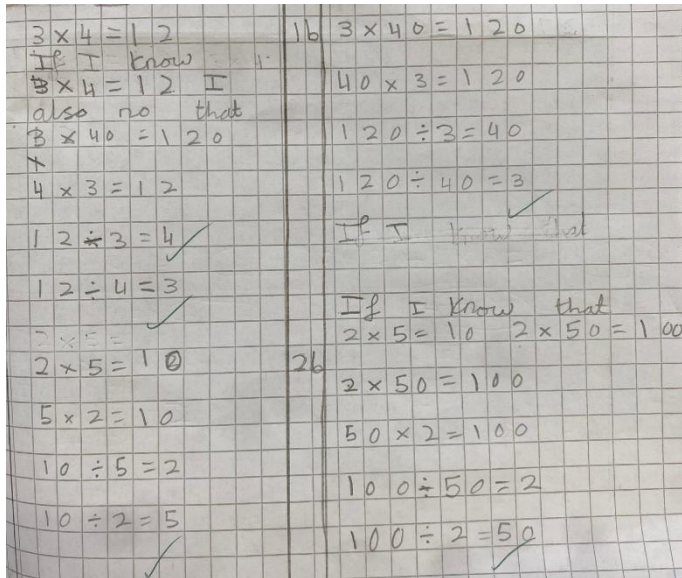 3 × 4 = 12
If I know
3 × 4 = 12 I
also no that
3 × 40 = 120
×
4 × 3 = 12
12 ÷ 3 = 4
12 ÷ 4 = 3
2 × 5 =
2 × 5 = 10
5 × 2 = 10
10 ÷ 5 = 2
10 ÷ 2 = 5
1b 3 × 40 = 120
40 × 3 = 120
120 ÷ 3 = 40
120 ÷ 40 = 3
If I know that
If I know that
2 × 5 = 10 2 × 50 = 100
2b
2 × 50 = 100
50 × 2 = 100
100 ÷ 50 = 2
100 ÷ 2 = 50